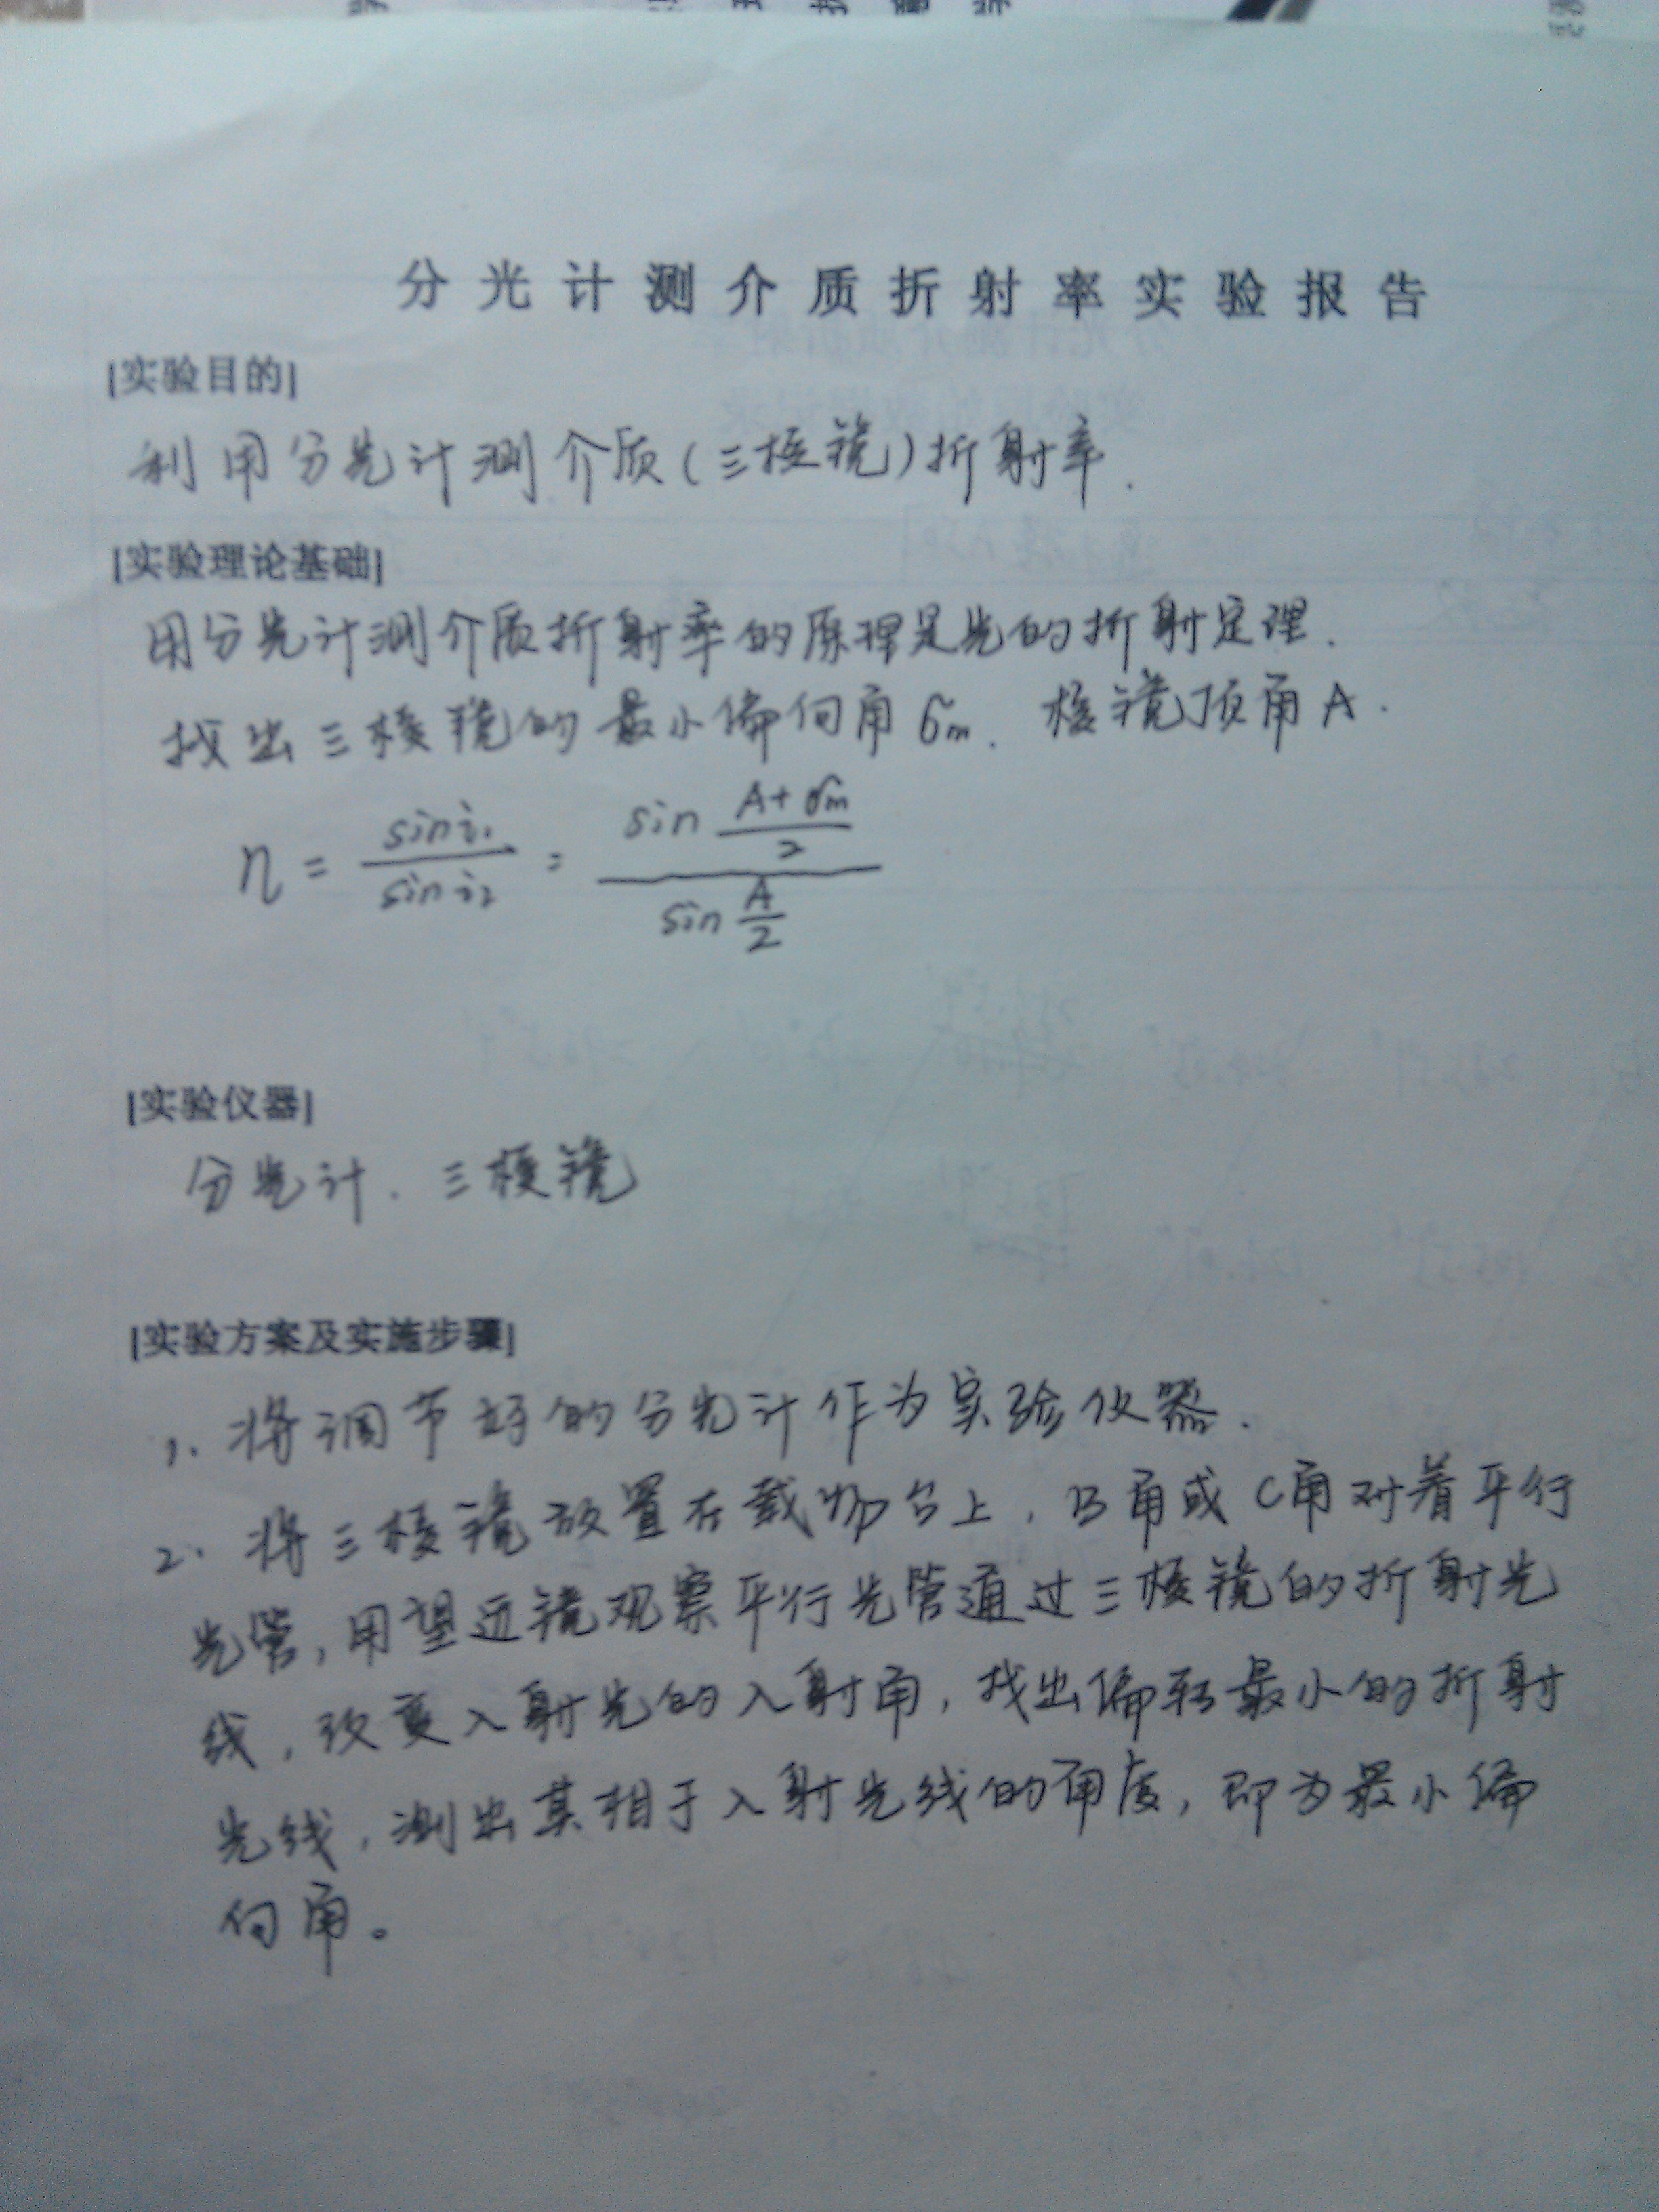 分光计测介质折射率实验报告
[实验目的]
利用分光计测介质(三棱镜)折射率.
[实验理论基础]
用分光计测介质折射率的原理是光的折射定理.
找出三棱镜的最小偏向角 δm. 棱镜顶角 A.
n = sin i₁ / sin i₂ = sin (A+δm)/2 / sin A/2
[实验仪器]
分光计. 三棱镜
[实验方案及实施步骤]
1. 将调节好的分光计作为实验仪器.
2. 将三棱镜放置在载物台上, B角或C角对着平行
光管, 用望远镜观察平行光管通过三棱镜的折射光
线, 改变入射光的入射角, 找出偏转最小的折射
光线, 测出其相于入射光线的角度, 即为最小偏
向角。